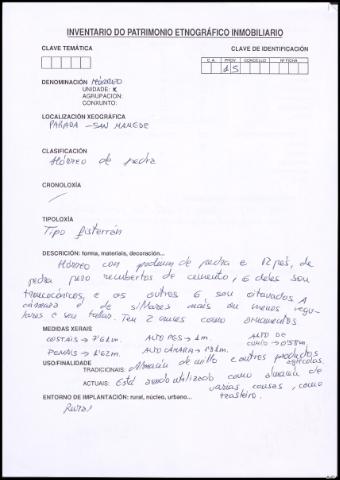 INVENTARIO DO PATRIMONIO ETNOGRÁFICO INMOBILIARIO
CLAVE TEMÁTICA
CLAVE DE IDENTIFICACIÓN
C.A. PROV. CONCELLO Nº FICHA
15
DENOMINACIÓN: HÓRREO
UNIDADE: X
AGRUPACION:
CONXUNTO:
LOCALIZACIÓN XEOGRÁFICA
PARADA - SAN MAMEDE
CLASIFICACIÓN
Hórreo de pedra
CRONOLOXÍA
TIPOLOXÍA
Tipo fisterrán
DESCRICIÓN: forma, materiais, decoración...
Hórreo con de pedra e 12 pés, de
pedra pero recubertos de cemento, 6 deles son
troncocónicos, e os outros 6 son oitavados. A
cámara é de sillares mais ou menos regu-
lares e sen tallar. Ten 2 cruces como ornamentos
MEDIDAS XERAIS
COSTAIS → 7'61m. ALTO PES → 1m. ALTO DE
PENAIS → 1'62m. ALTO CÁMARA → 1'81m. CUMIO → 0'55m.
USO/FINALIDADE
TRADICIONAL: Almacén de millo e outros productos agrícolas.
ACTUAIS: Está sendo utilizado como almacén de
varias cousas, como
trasteiro.
ENTORNO DE IMPLANTACIÓN: rural, núcleo, urbano...
Rural